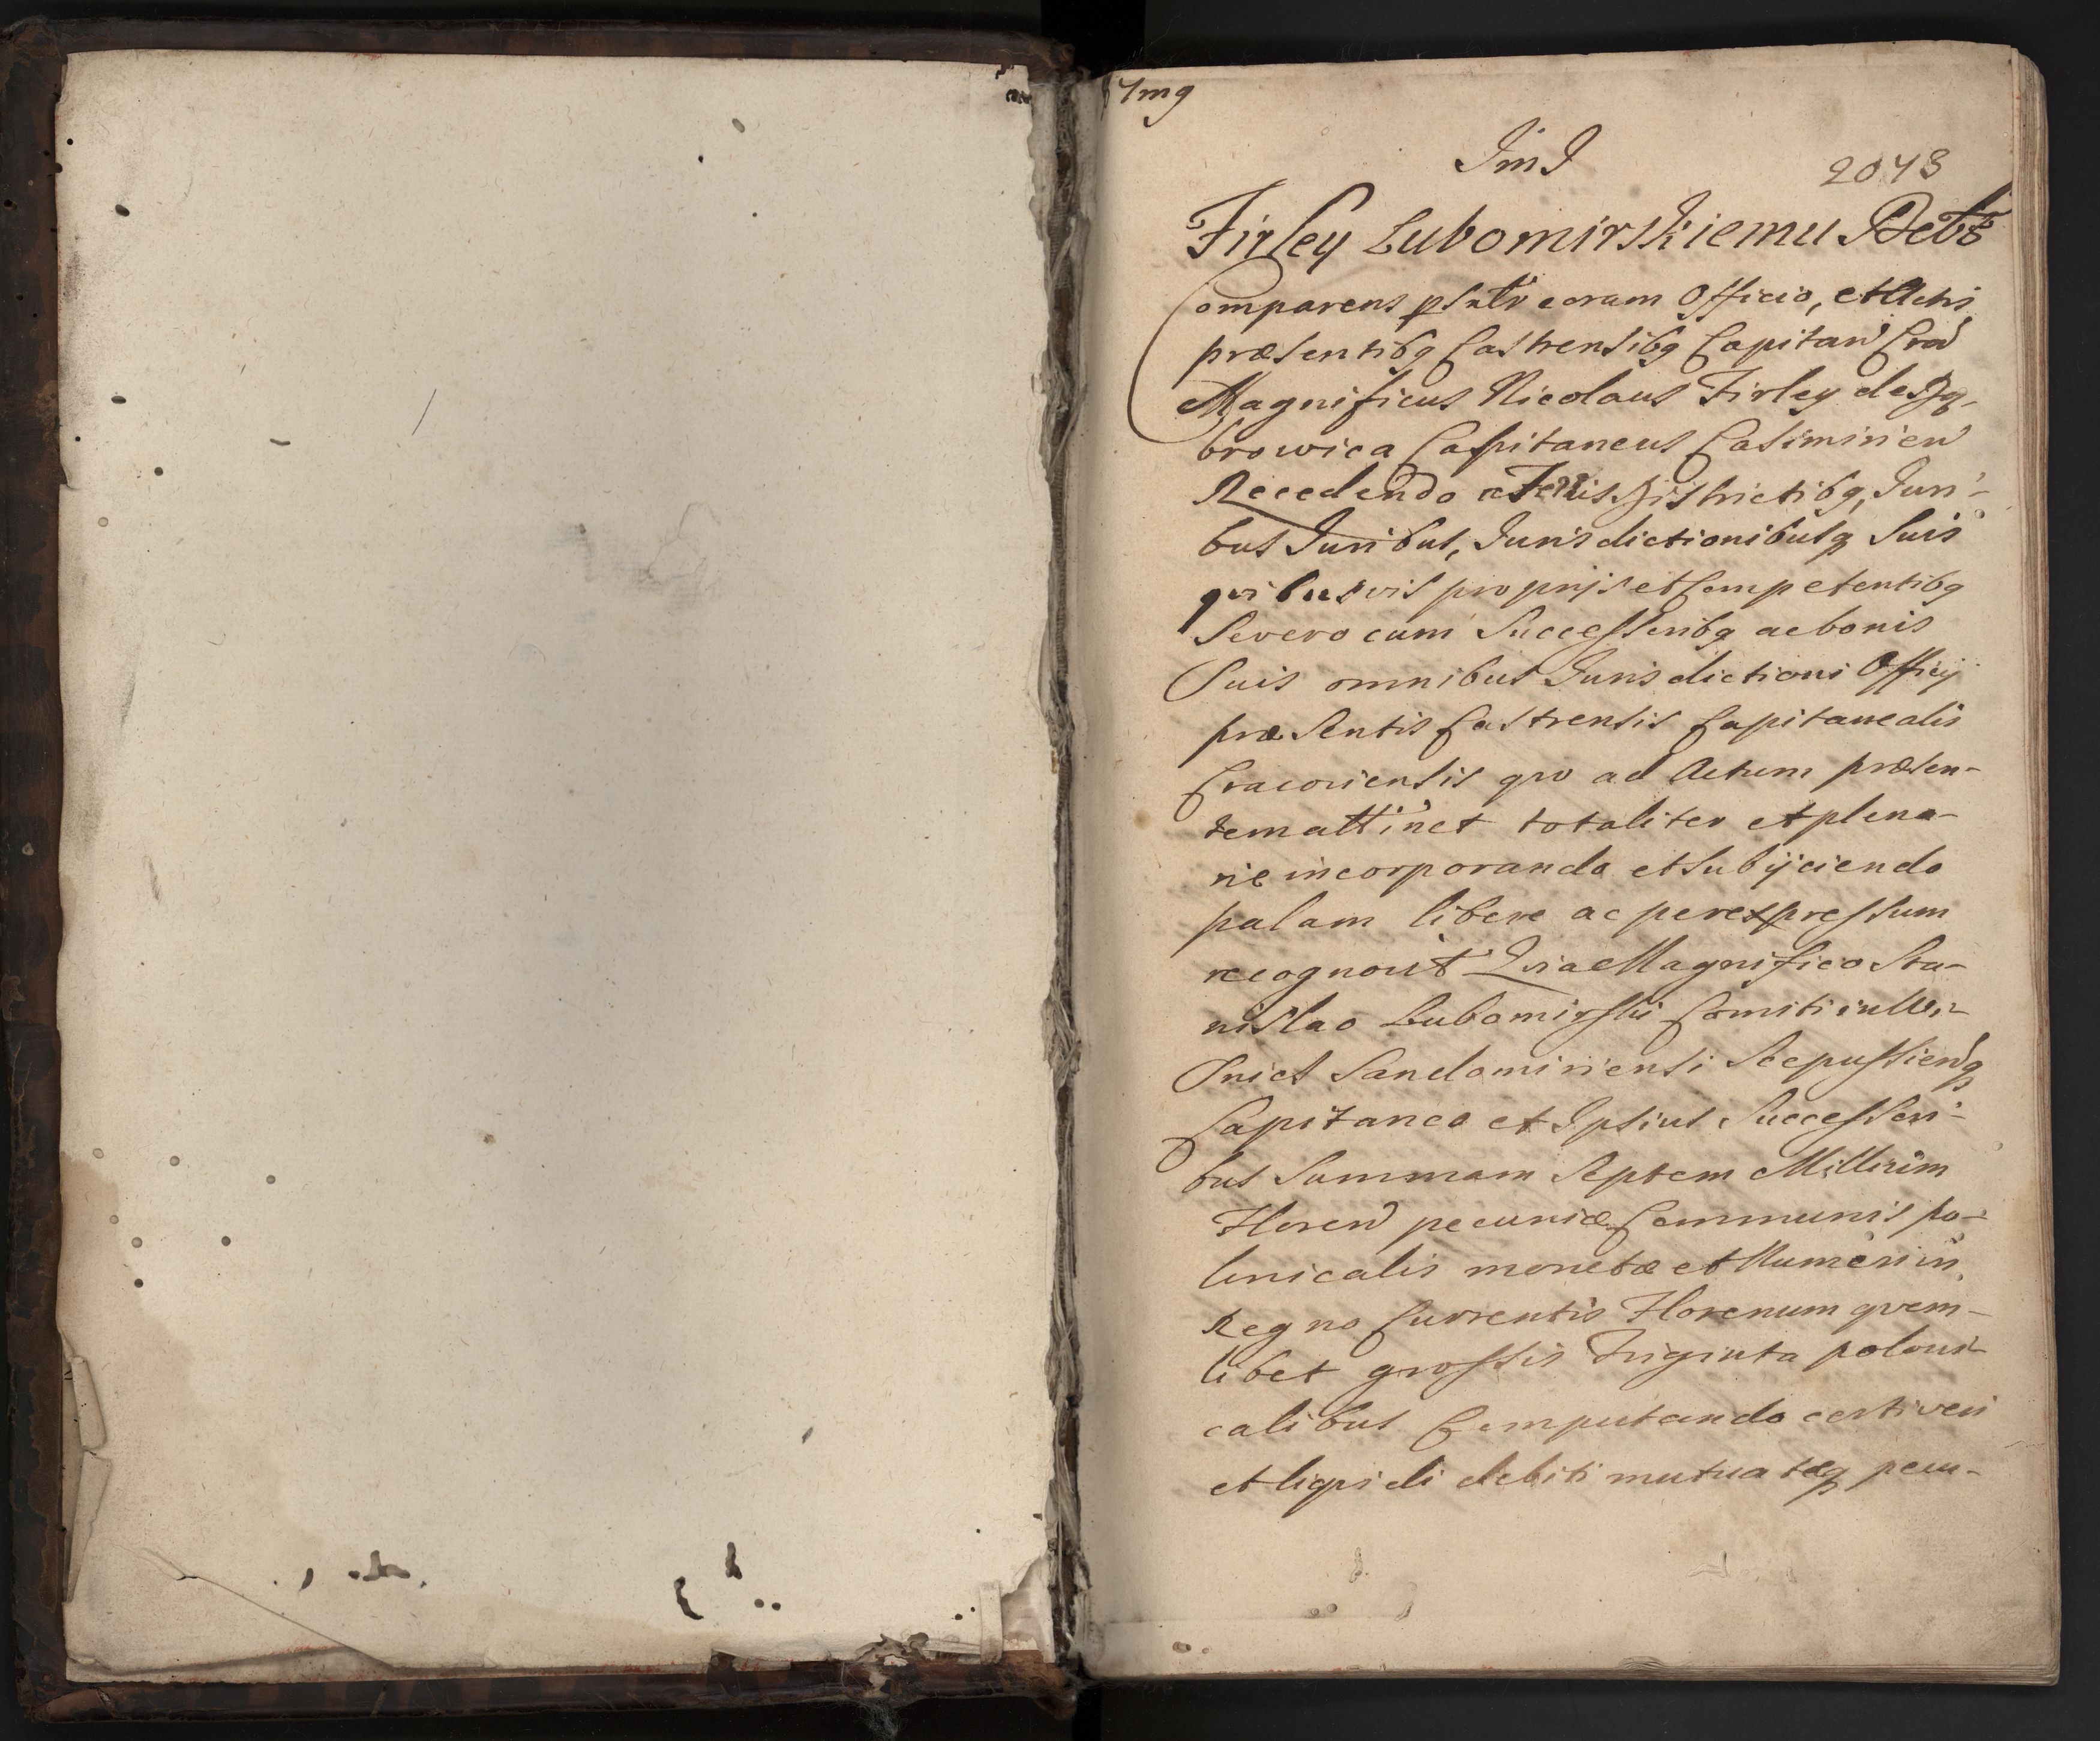 Img
JmJ
2043
Firley Lubomirskiemu Debt
Comparens psnlr coram Officio, et Actis
præsentibq Castrensibq Capitan Crac
Magnificus Nicolaus Firley de Dą-
browica Capitaneus Casimirien
Recedendo a Terris Districtibq, Juri-
bus Juribus, Jurisdictionibusq suis
qvibusvis proprijs et Competentibq
Se vero cum Successoribq ac bonis
Suis omnibus Jurisdictioni Officij
præsentis Castrensis Capitanealis
Cracoviensis qvo ad Actum præsen-
tem attinet totaliter et plena-
rie incorporando et subijciendo
palam libere ac per expressum
recognovit Qvia Magnifico Sta-
nislao Lubomirski Comiti in Wi-
Snicz Sandomiriensi Scepussienq
Capitaneo et Ipsius Successori-
bus Summam Septem Millium
Floren pecuniæ Communis po-
lonicalis monetæ et Numeri in
Regno Currentis Florenum qvem-
libet grossis Triginta poloni-
calibus Computando certi veri
et liqvidi debiti mutuatæq pecu-